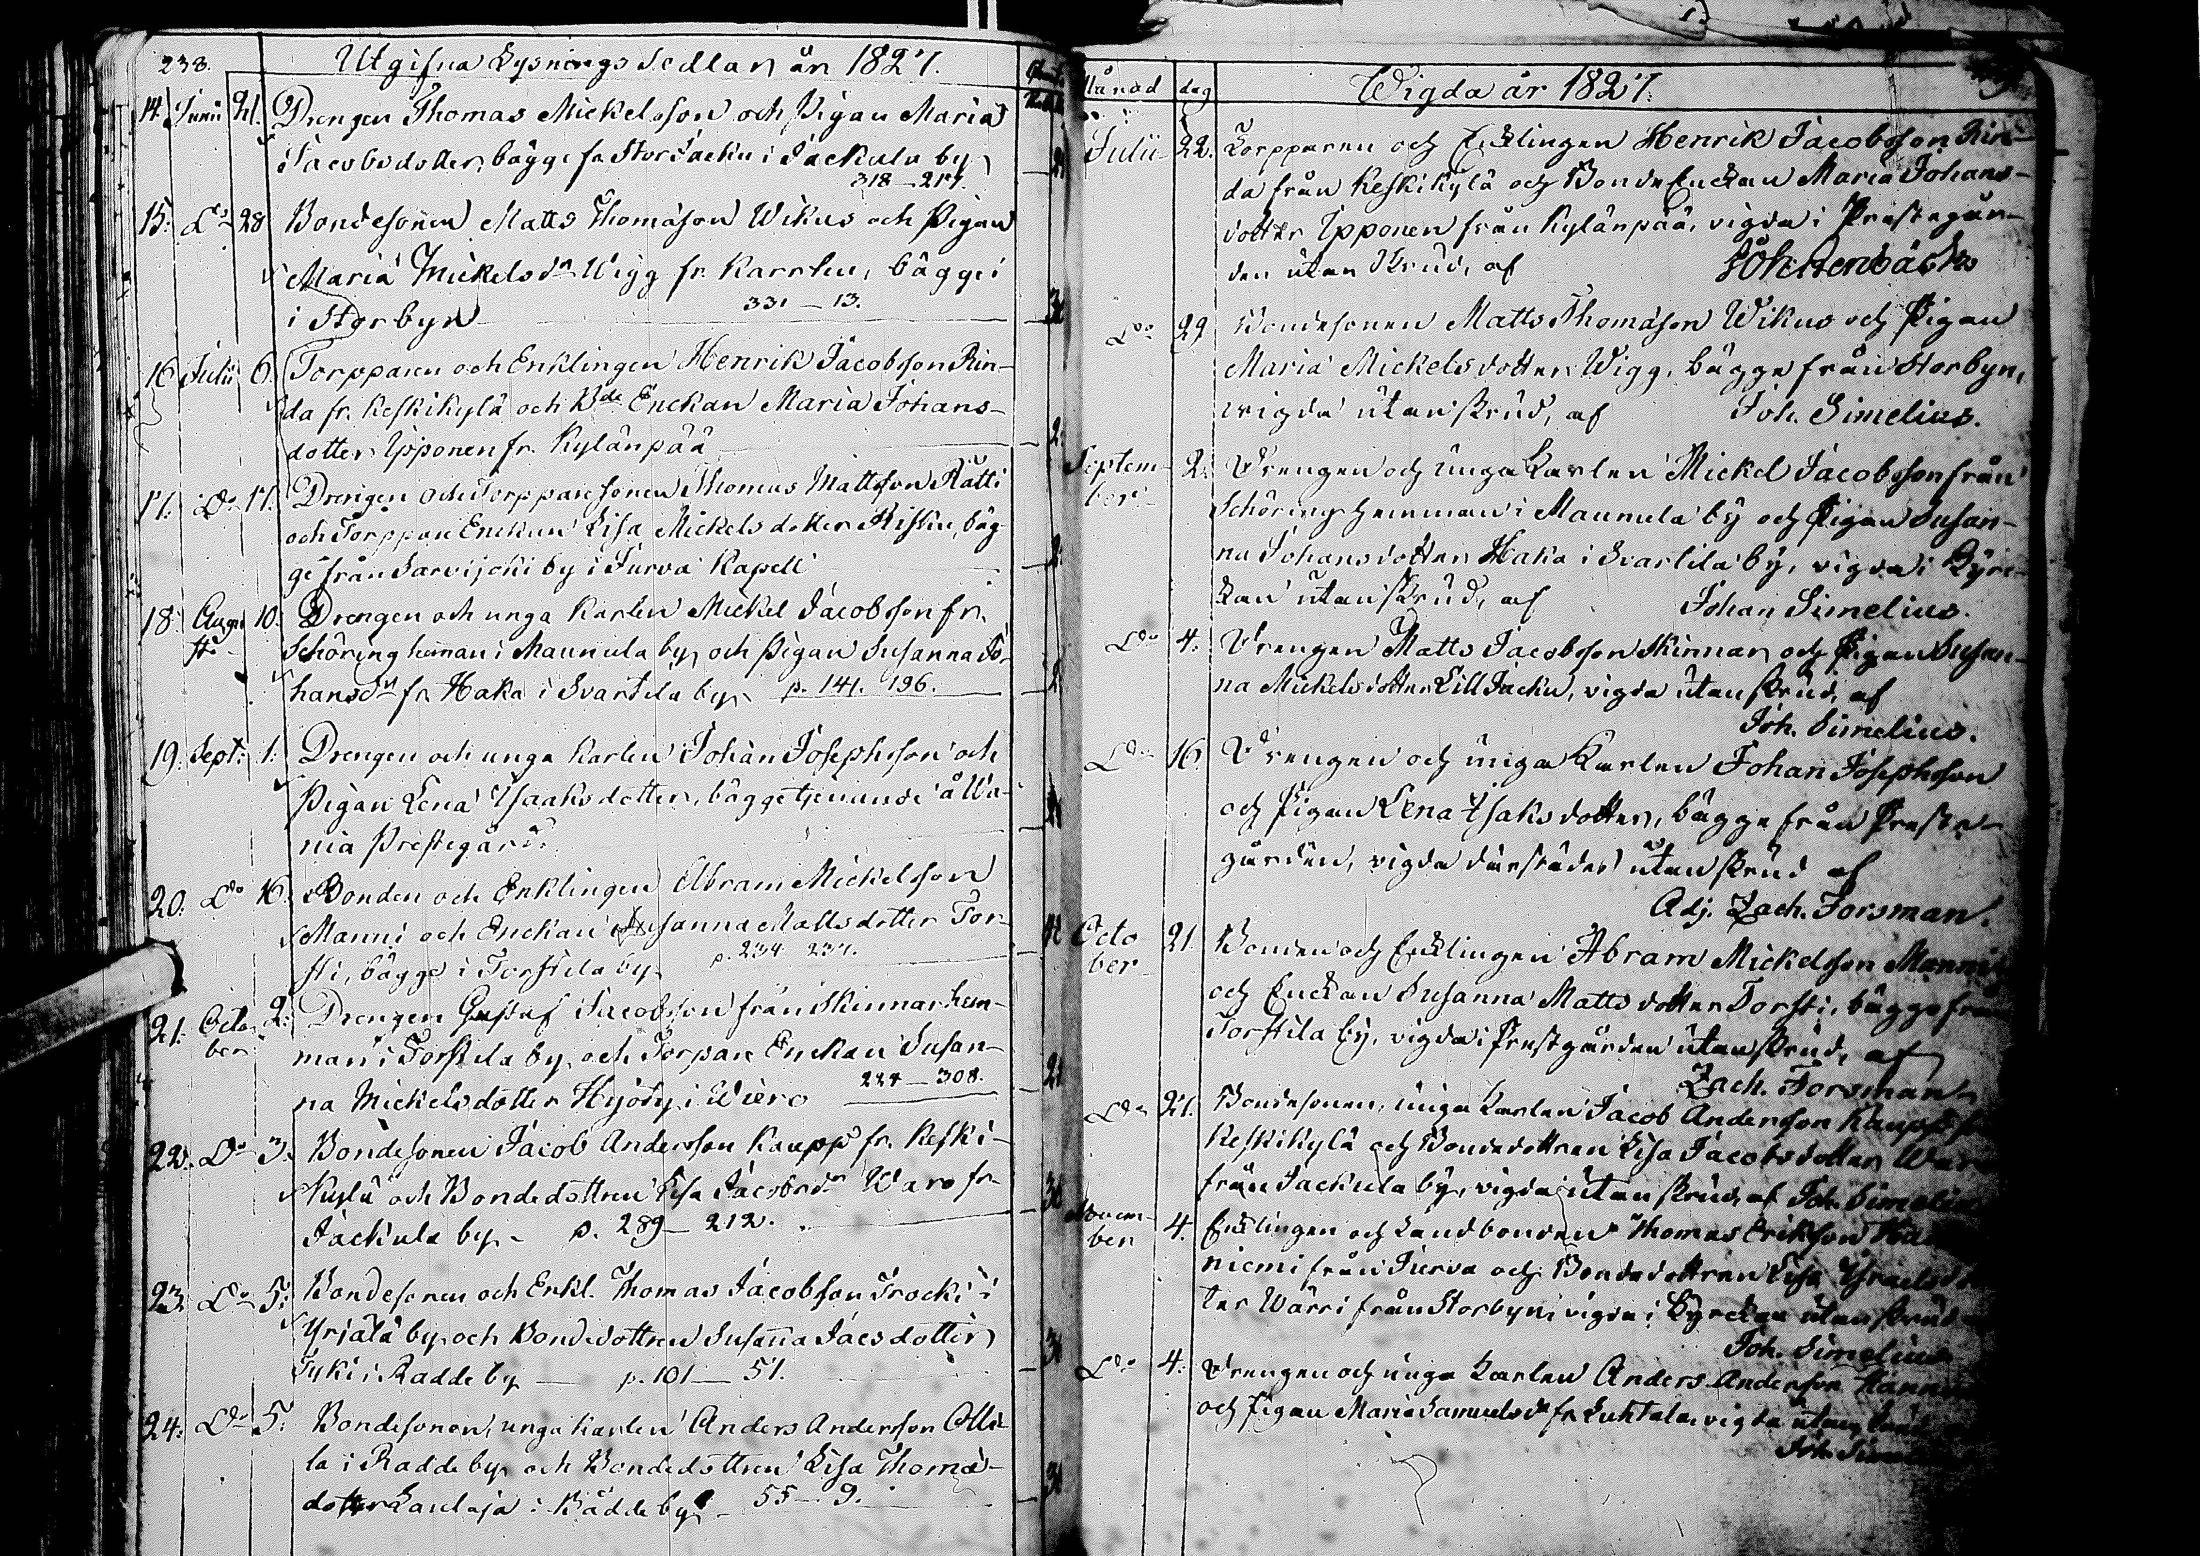 238.
Utgifna Lysnings Sedlar år 1827.
14. Junii 21. Drengen Thomas Mickelsson och Pigan Maria
Jacobsdotter, bägge fr StorJacku i Jackula by
318 - 217.
15. Do 28 Bondesonen Matts Thomasson Wikus och Pigan
Maria Mickelsdr Wigg fr. Karrlin, bägge i
i Storbyn 331 - 13.
16 Julii 6. Torpparen och Enklingen Henrik Jacobsson Rin-
da fr. Keskikylä och Bde Enckan Maria Johans-
dotter Ypponen fr. Kylänpää
17. Do 17. Drengen och Torpparesonen Thomas Mattsson Rätti
och Torppare Enckan Lisa Mickelsdotter Risku, bäg-
ge från Sarvijoki by i Jurva Kapell
18. Augu 10. Drengen och unga Karlen Mickel Jacobsson fr.
sti
Schöring heman i Maunula by och Pigan Susanna Jo-
hansdr fr. Haka i Svartila by p. 141. 196.
19. Sept: 1. Drengen och unga Karlen Johan Josephsson och
Pigan Lena Ysaaksdotter, bägge tjenande å Wä-
nia Prestegård.
20. Do 16. Bonden och Enklingen Abram Mickelsson
Manni och Enckan Susanna Mattsdotter Tor-
sti, bägge i Torstila by p. 234 237.
21. Octo 2. Drengen Gustaf Jacobsson från Skinnar hem-
ber
man i Torstila by och Torpare Enckan Susan-
224 - 308.
na Mickelsdotter Hyöty i Wiero
22. Do 3. Bondesonen Jacob Andersson Kaupp fr. Keski-
Kylä och Bondedottren Lisa Jacobsdr Waro fr
Jackula by - p. 289 - 212.
23. Do 5. Bondesonen och Enkl. Thomas Jacobsson Trocki i
Yrjälä by och Bondedottren Susanna Jacsdotter
Tyki i Radde by - p. 101 - 57.
24. Do 5. Bondesonen, unga Karlen Anders Andersson Olli-
la i Radde by och Bondedottren Lisa Thomas-
dotter Kaulaja i Rädde by - 55 - 9.
Månad dag Wigda år 1827.
Julii 22. Torpparen och Encklingen Henrik Jacobsson Rin-
da från Keskikylä och Bonde Enckan Maria Johans-
dotter Ypponen från Kylänpää, vigda i Prestegår-
den utan Skrud, af
Do 29 Bondesonen Matts Thomasson Wikus och Pigan
Maria Mickelsdotter Wigg, bägge från Storbyn,
vigda utan skrud, af Joh. Simelius.
Septem- 2. Drengen och unga Karlen Mickel Jacobsson från
ber
Schörings Hemman i Maunula by och Pigan Susan-
na Johansdotter Haka i Svartila by, vigda i Kyrc-
kan utan skrud, af Johan Simelius.
Do 4. Drengen Matts Jacobsson Skinnar och Pigan Susan-
na Mickelsdotter LillJacku, vigda utan skrud, af
Joh. Simelius.
Do 16. Drengen och unga Karlen Johan Josephsson
och Pigan Lena Ysaksdotter, bägge från Preste-
gården, vigda därstädes utan skrud af
Adj. Zach. Forsman.
Octo 21. Bonden och Encklingen Abram Mickelsson Manni
ber
och Enckan Susanna Mattsdotter Torsti, bägge från
Torstila by, vigda i Prestgården utan skrud, af
Zach. Forsman
Do 27. Bondesonen, unga Karlen Jacob Andersson Kaupp
Keskikylä och Bondedottren Lisa Jacobsdotter
från Jackula by, vigda utan skrud, af Joh. Simelius
Novem- 4. Encklingen och Landbonden Thomas Eriksson
ber
niemi från Jurva och Bondedottren Lisa
ter Wärri från Storbyn, vigda i Kyrckan utan skrud
Joh. Simelius
Do 4. Drengen och unga Karlen Anders Andersson
och Pigan Maria Samuelsdr fr Luhtala, vigda utan
Joh.